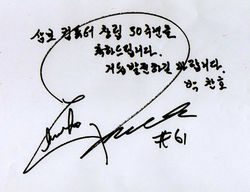 삼보 컴퓨터 창립 30주년을
축하드립니다.
거듭발전하길 바랍니다.
박 찬호
#61